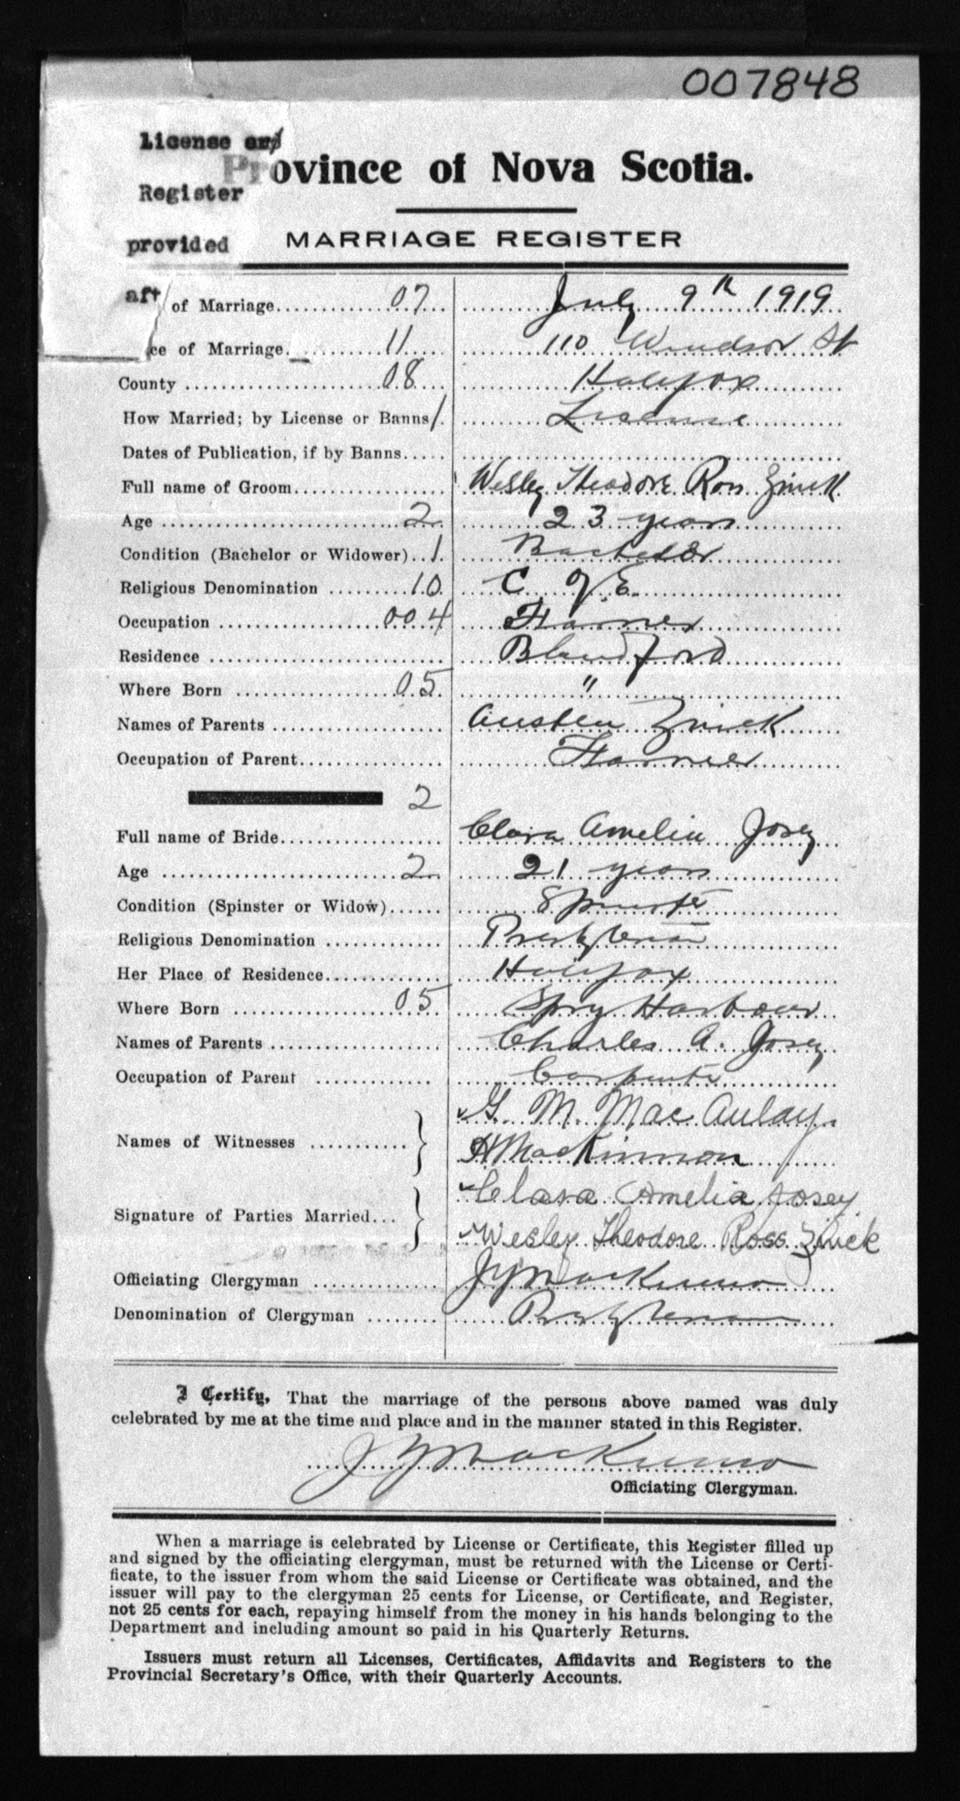 007848
License and
Province of Nova Scotia.
Register
provided
MARRIAGE REGISTER
aft
of Marriage 07 July 9th 1919
ce of Marriage. 11 110 Windsor St
County 08 Halifax
How Married; by License or Banns 1 License
Dates of Publication, if by Banns
Full name of Groom Wesley Theodore Ross Zinck
Age 2 23 years
Condition (Bachelor or Widower) 1 Bachelor
Religious Denomination 10 C of E.
Occupation 004 Farmer
Residence Blandford
Where Born 05 "
Names of Parents Austen Zinck
Occupation of Parent Farmer
2
Full name of Bride Clara Amelia Josey
Age 2 21 years
Condition (Spinster or Widow) Spinster
Religious Denomination Presbyterian
Her Place of Residence Halifax
Where Born 05 Spry Harbour
Names of Parents Charles A. Josey
Occupation of Parent Carpenter
G. M. MacAulay
Names of Witnesses
H MacKinnon
Clara Amelia Josey
Signature of Parties Married
Wesley Theodore Ross Zinck
Officiating Clergyman MacKinnon
Denomination of Clergyman Presbyterian
I Certify, That the marriage of the persons above named was duly
celebrated by me at the time and place and in the manner stated in this Register.
MacKinnon
Officiating Clergyman.
When a marriage is celebrated by License or Certificate, this Register filled up
and signed by the officiating clergyman, must be returned with the License or Certi-
ficate, to the issuer from whom the said License or Certificate was obtained, and the
issuer will pay to the clergyman 25 cents for License, or Certificate, and Register,
not 25 cents for each, repaying himself from the money in his hands belonging to the
Department and including amount so paid in his Quarterly Returns.
Issuers must return all Licenses, Certificates, Affidavits and Registers to the
Provincial Secretary's Office, with their Quarterly Accounts.